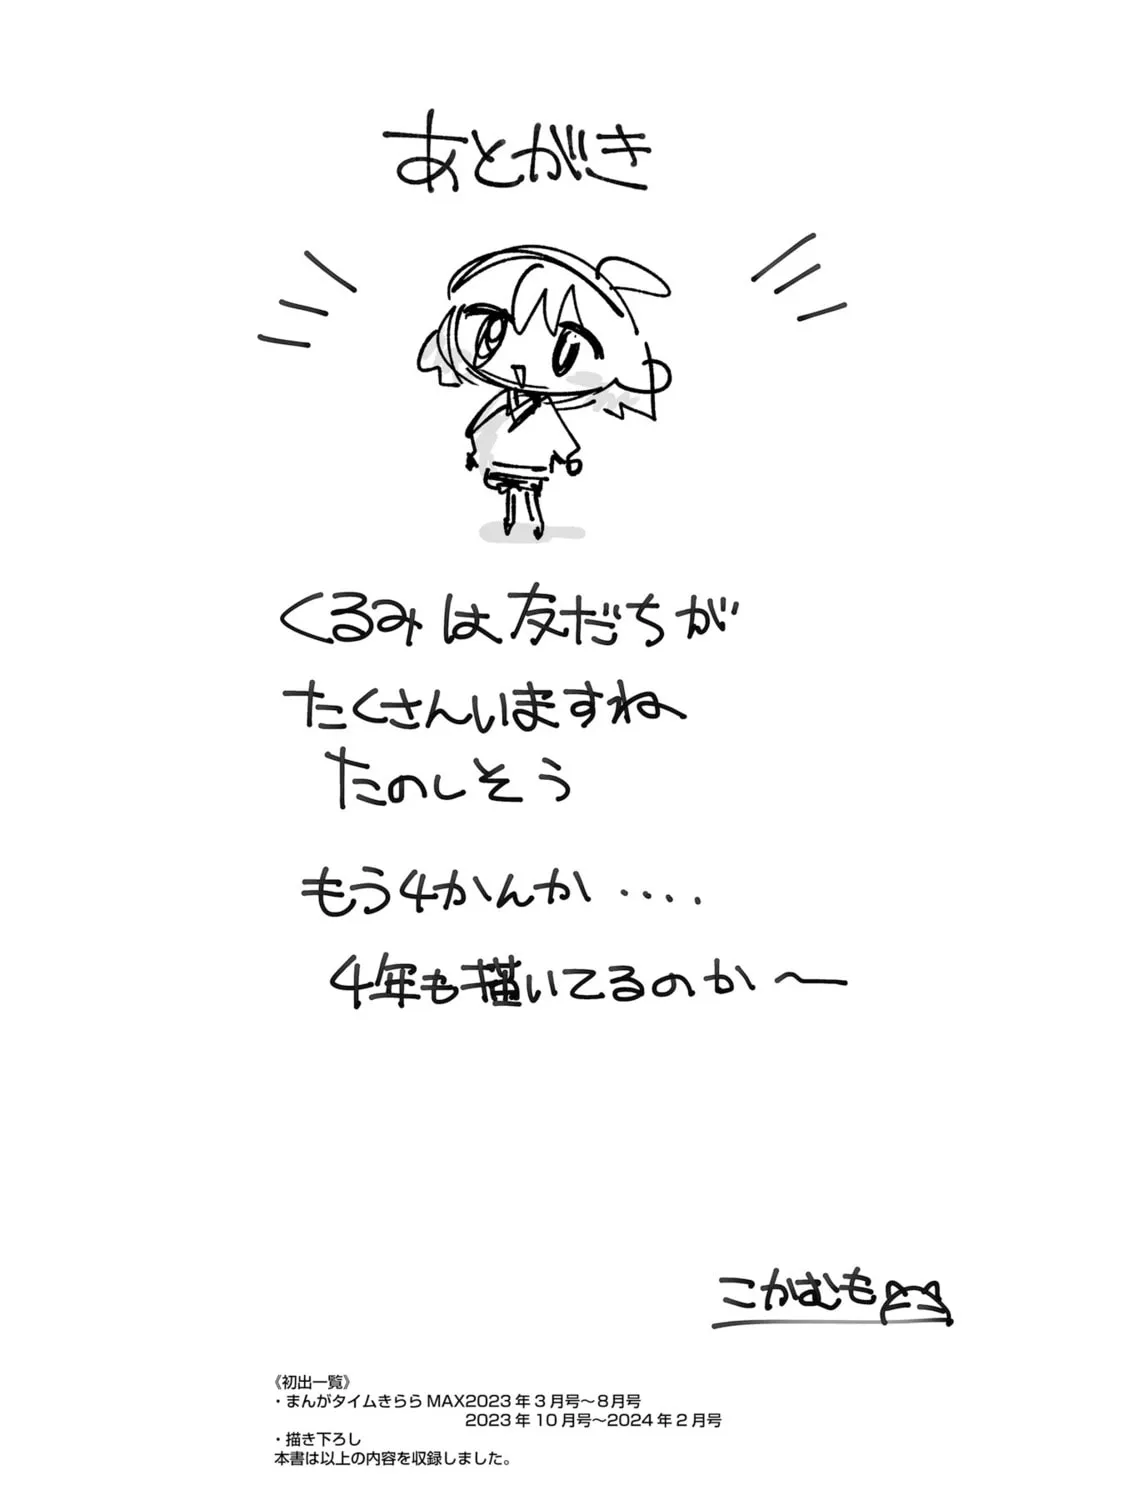 あとがき
くるみは友だちが
たくさんいますね
たのしそう
もう4かんか‥‥
4年も描いてるのか〜
こかむも
《初出一覧》
・まんがタイムきららMAX2023年3月号〜8月号
2023年10月号〜2024年2月号
・描き下ろし
本書は以上の内容を収録しました。